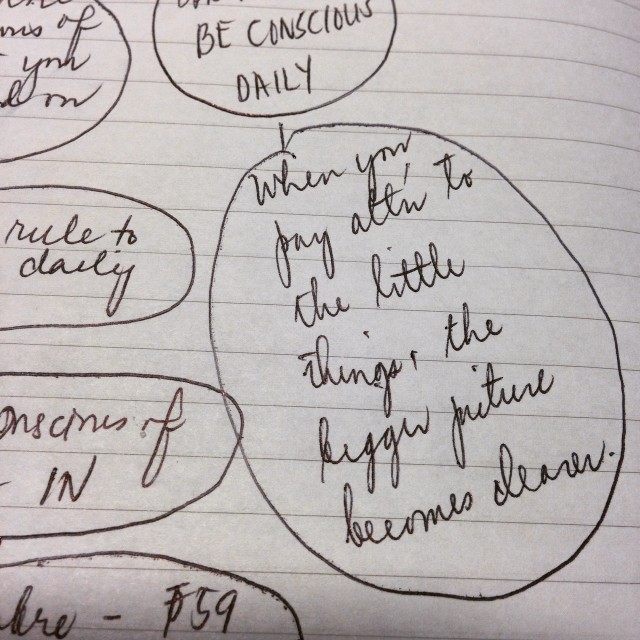 BE CONSCIOUS
DAILY
of
when you
pay attn to
the little
things, the
bigger picture
becomes clearer.
rule to
daily
conscious of
- IN
- F59